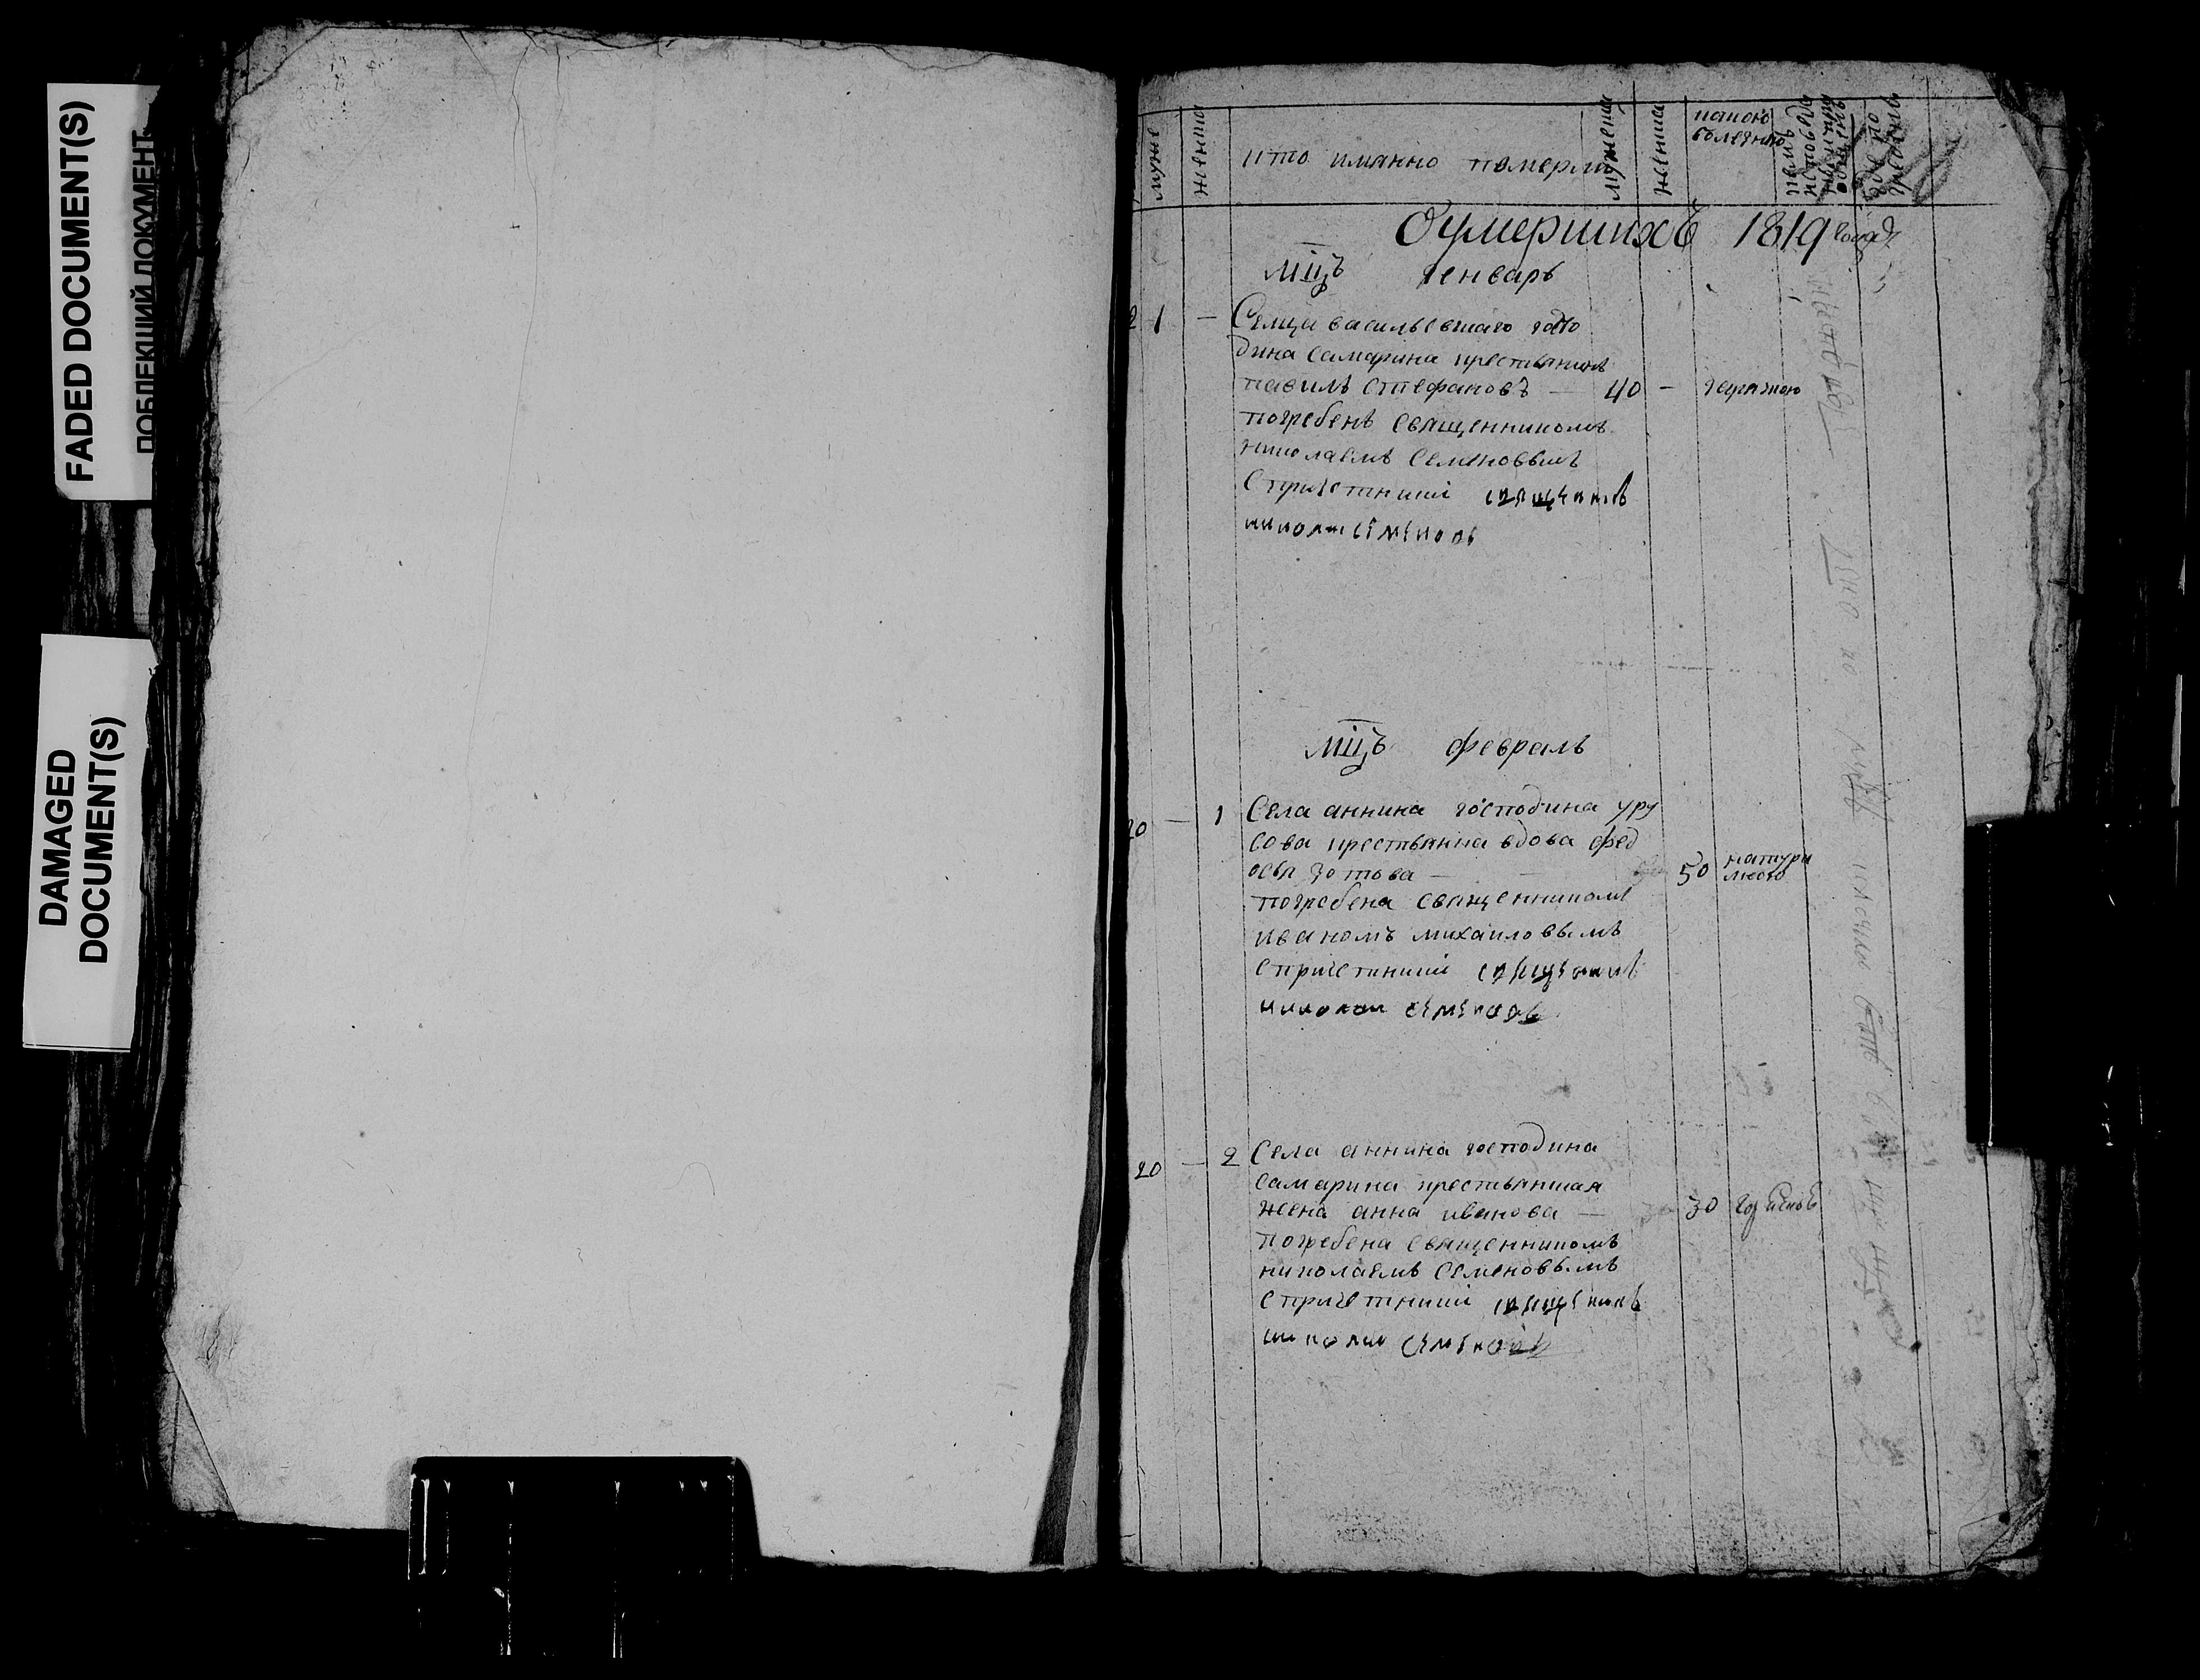 FADED DOCUMENT(S)
ПОБЛЕКШИЙ ДОКУМЕНТ
DAMAGED
DOCUMENT(S)
муже
женска
кто имянно померли
мужеска
женска
какою
болезнию
О умершихъ 1819 года
мц̃ъ генварь
1 — Сельца васильевскаго госпо
дина самарина крестьянинъ
павилъ Стефановъ — 40 — горячкою
погребенъ священникомъ
николаемъ Семеновымъ
Спричетники священникъ
николаи семеновъ
мц̃ъ февраль
20 — 1 Села аннина господина уру
сова крестьянка вдова фед
осья зотова — 50 натура
лною
погребена священникомъ
иваномъ михаиловымъ
спричетники священникъ
николаи семеновъ
20 — 2 Села аннина господина
самарина крестьянская
жена анна иванова — 30
погребена священникомъ
николаемъ Семеновымъ
спричетники священникъ
николаи семеновъ